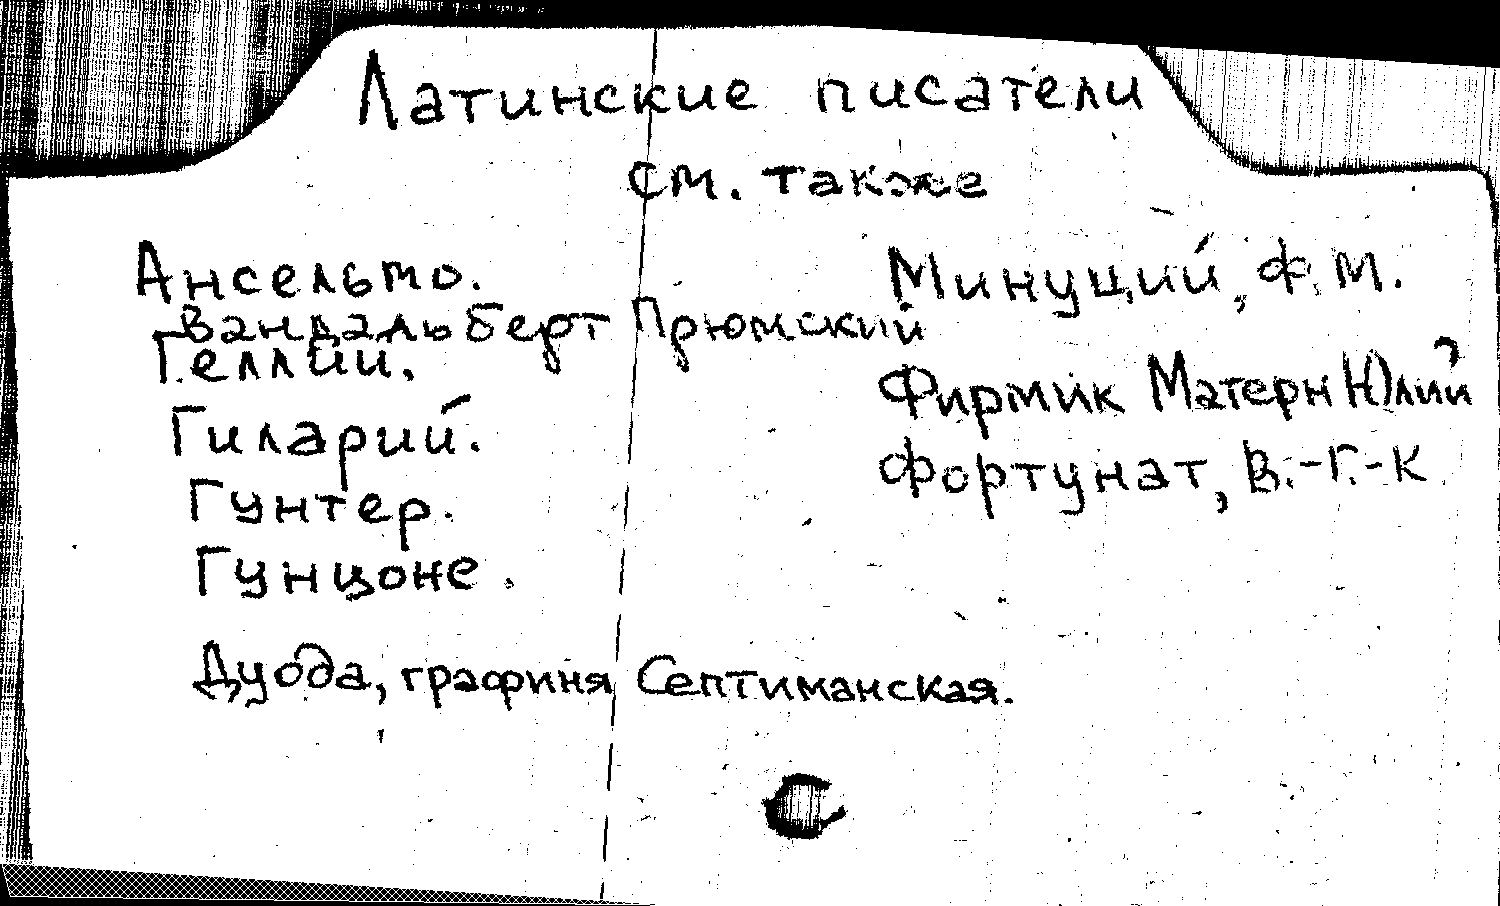 Латинские писатели
см. также
Ансельмо.
Вандальберт Прюмский
Геллий.
Гиларий.
Гунтер.
Гунцоне.
Дуода, графиня Септиманская.
Минуций, Ф. М.
Фирмик Матерн Юлий
Фортунат, В.-Г.-К